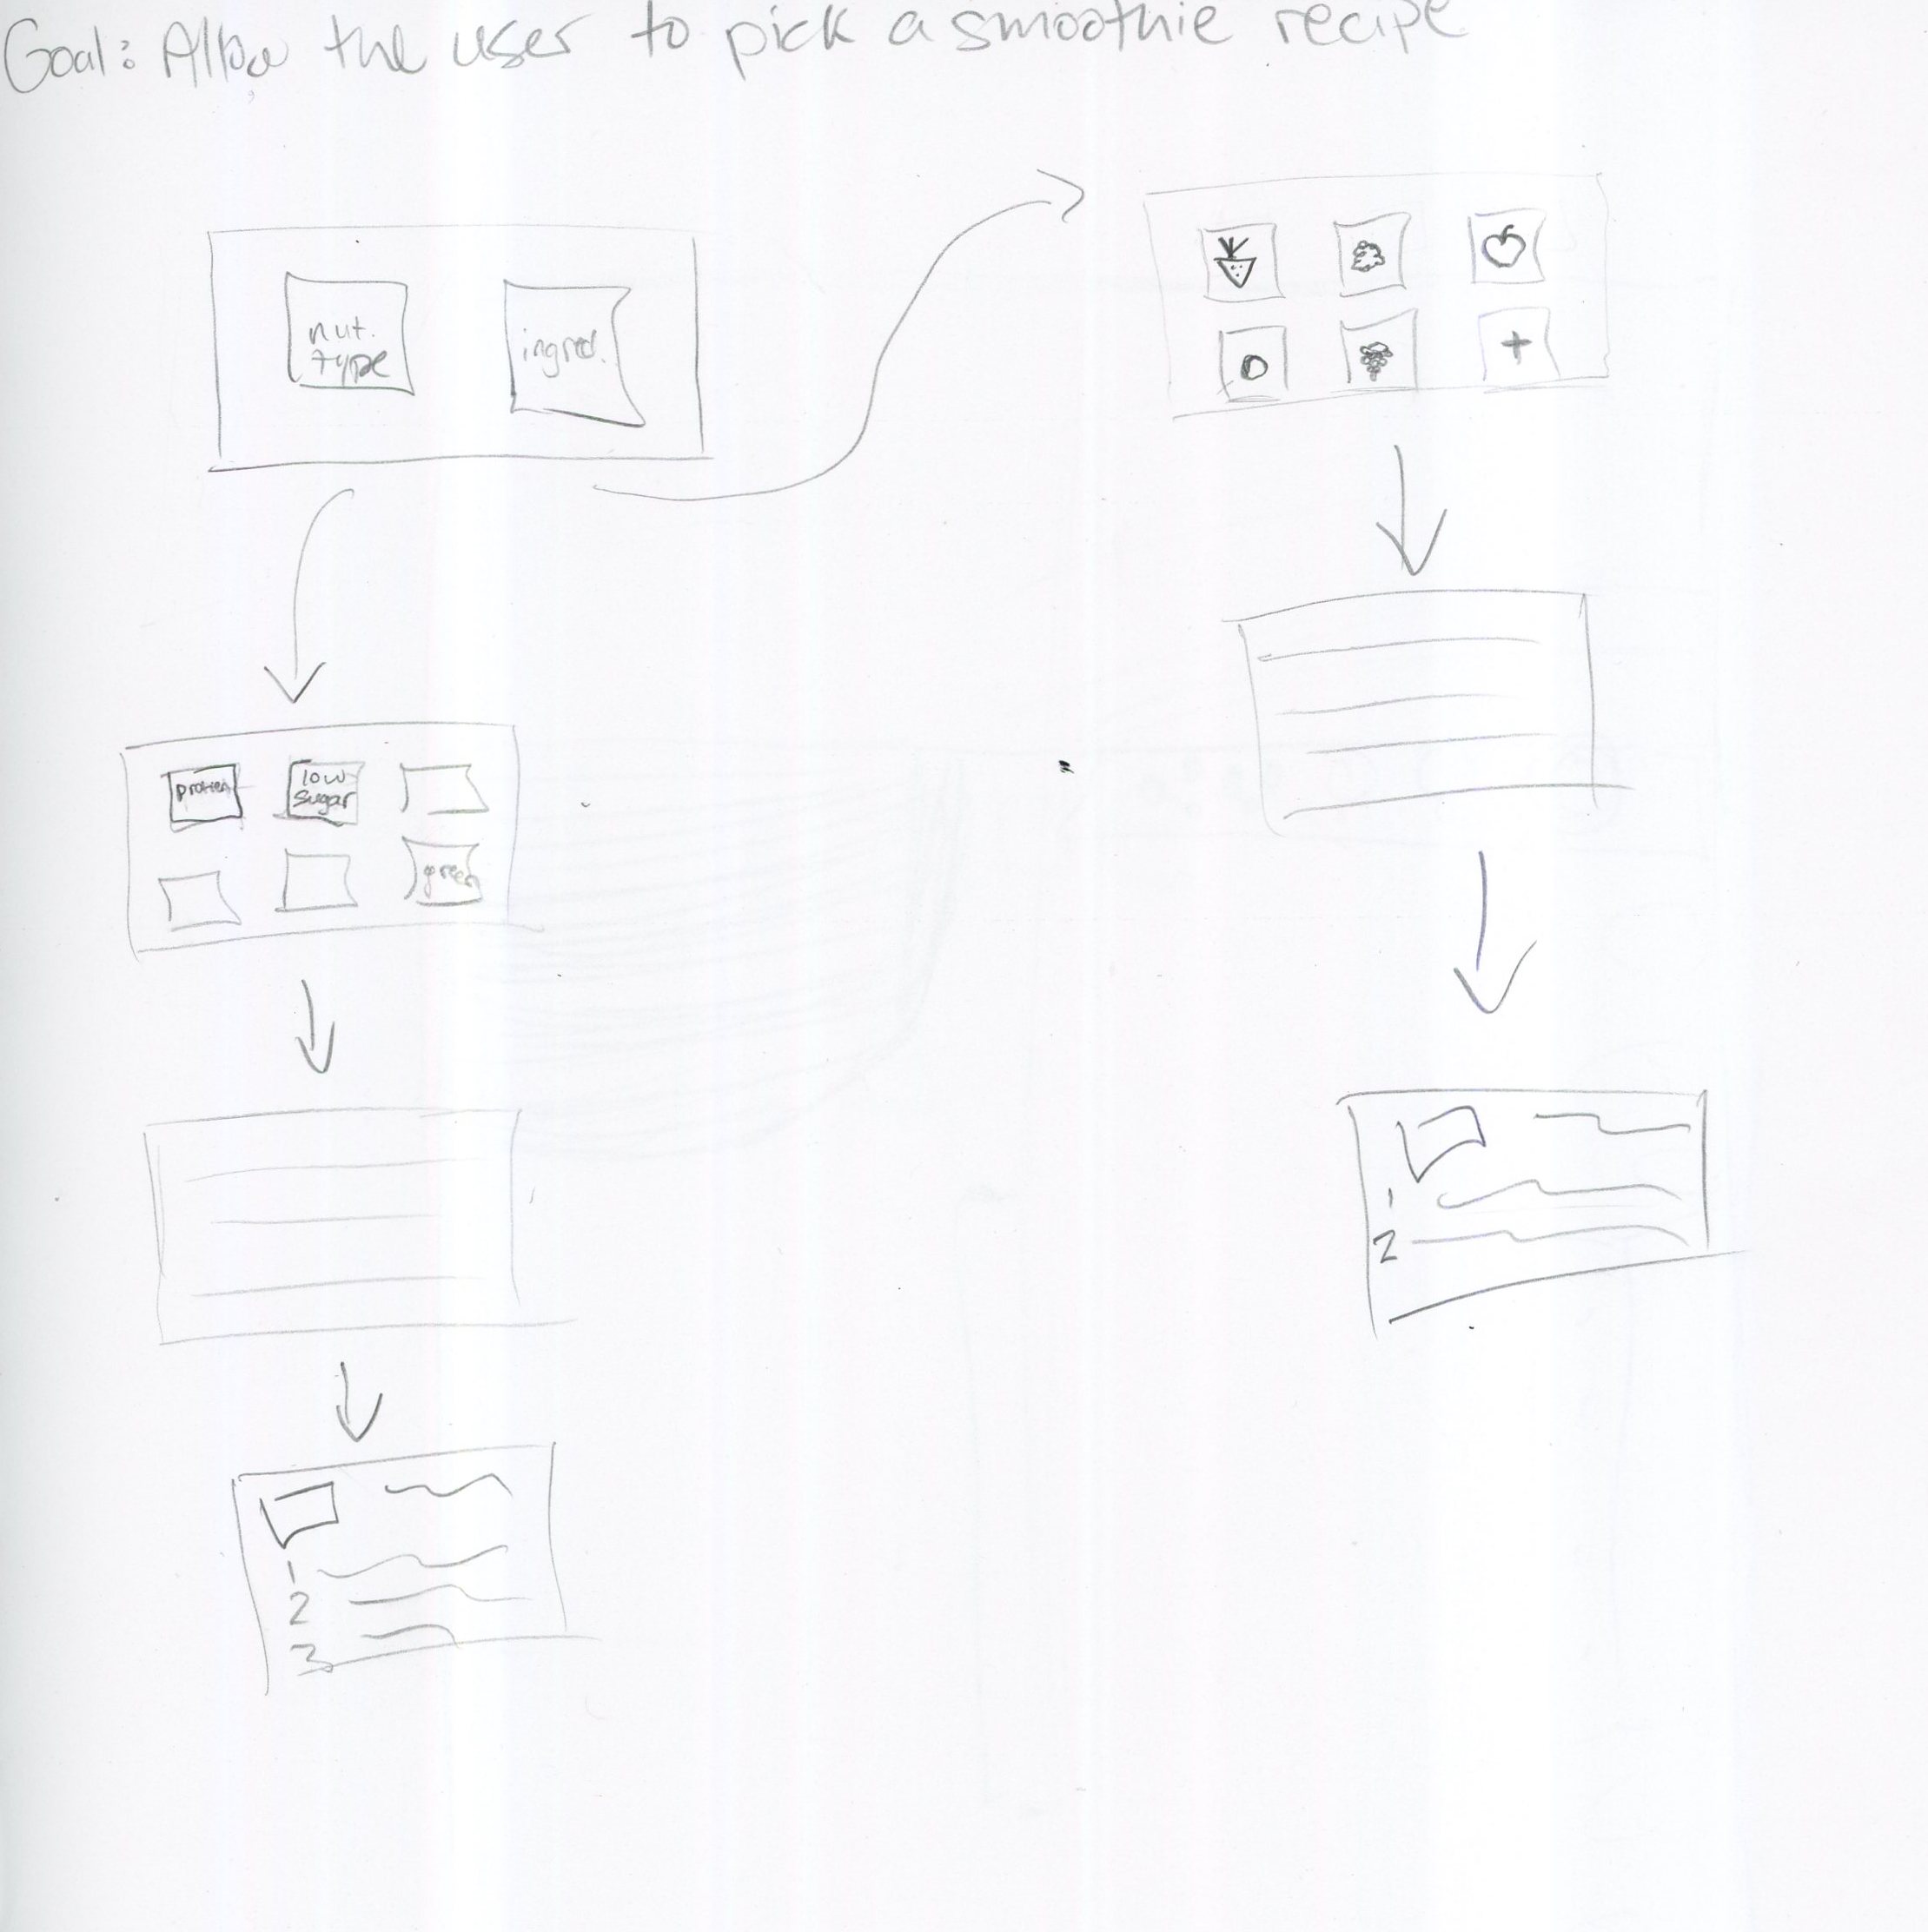 Goal: Allow the user to pick a smoothie recipe
nut.
type
ingred.
protien
low
sugar
green
1
2
3
1
2